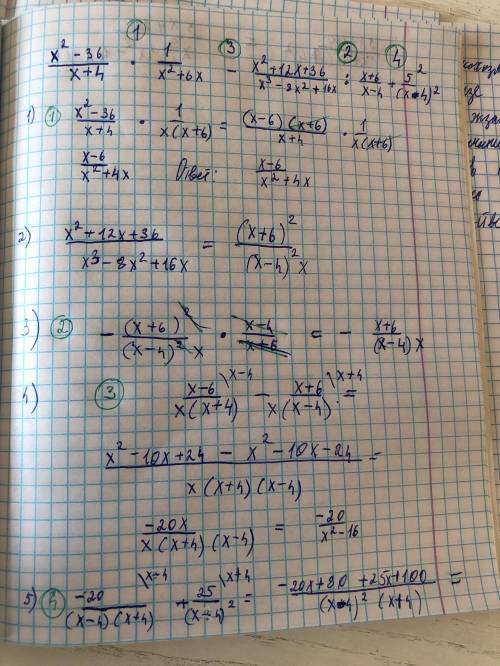 ① ③ ② ④
(x² - 36)/(x+4) · 1/(x²+6x) - (x²+12x+36)/(x³-8x²+16x) : (x+6)/(x-4) + 5²/(x-4)²
1) ① (x²-36)/(x+4) · 1/(x(x+6)) = ((x-6)(x+6))/(x+4) · 1/(x(x+6))
(x-6)/(x²+4x) Ответ: (x-6)/(x²+4x)
2) (x²+12x+36)/(x³-8x²+16x) = (x+6)²/((x-4)²x)
3) ② - (x+6)²/((x-4)²x) · (x-4)/(x+6) = - (x+6)/((x-4)x)
4) ③ (x-6)/(x(x+4)) \x-4 - (x+6)/(x(x-4)) \x+4 =
(x²-10x+24 - x²-10x-24)/(x(x+4)(x-4)) =
(-20x)/(x(x+4)(x-4)) = (-20)/(x²-16)
5) ④ (-20)/((x-4)(x+4)) \x-4 + 25/(x-4)² \x+4 = (-20x+80+25x+100)/((x-4)²(x+4)) =